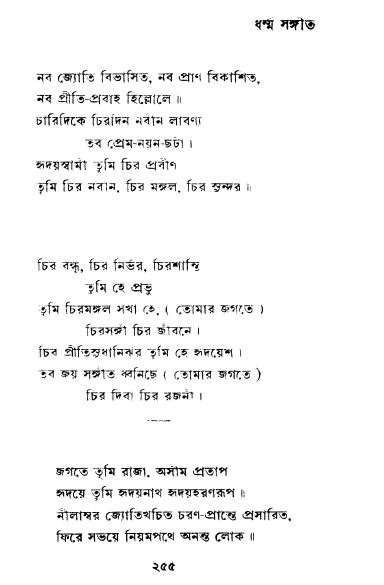 ধর্ম্ম সঙ্গীত
নব জ্যোতি বিভাসিত, নব প্রাণ বিকাশিত,
নব প্রীতি-প্রবাহ হিল্লোলে॥
চারিদিকে চিরদিন নবীন লাবণ্য
তব প্রেম-নয়ন-ছটা।
হৃদয়স্বামী তুমি চির প্রবীণ
তুমি চির নবীন, চির মঙ্গল, চির সুন্দর॥
চির বন্ধু, চির নির্ভর, চিরশান্তি
তুমি হে প্রভু
তুমি চিরমঙ্গল সখা হে, ( তোমার জগতে )
চিরসঙ্গী চির জীবনে।
চির প্রীতিসুধানিঝর তুমি হে হৃদয়েশ।
তব জয় সঙ্গীত ধ্বনিছে ( তোমার জগতে )
চির দিবা চির রজনী।
জগতে তুমি রাজা, অসীম প্রতাপ
হৃদয়ে তুমি হৃদয়নাথ হৃদয়হরণরূপ॥
নীলাম্বর জ্যোতিখচিত চরণ-প্রান্তে প্রসারিত,
ফিরে সভয়ে নিয়মপথে অনন্ত লোক॥
২৫৫